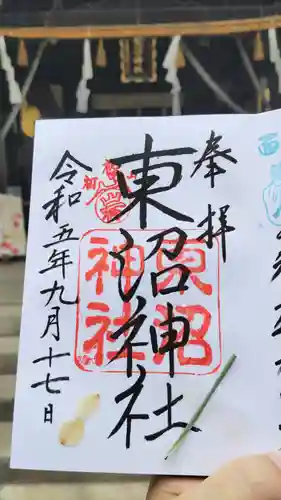 奉拝
東沼神社
東沼神社
令和五年九月十七日